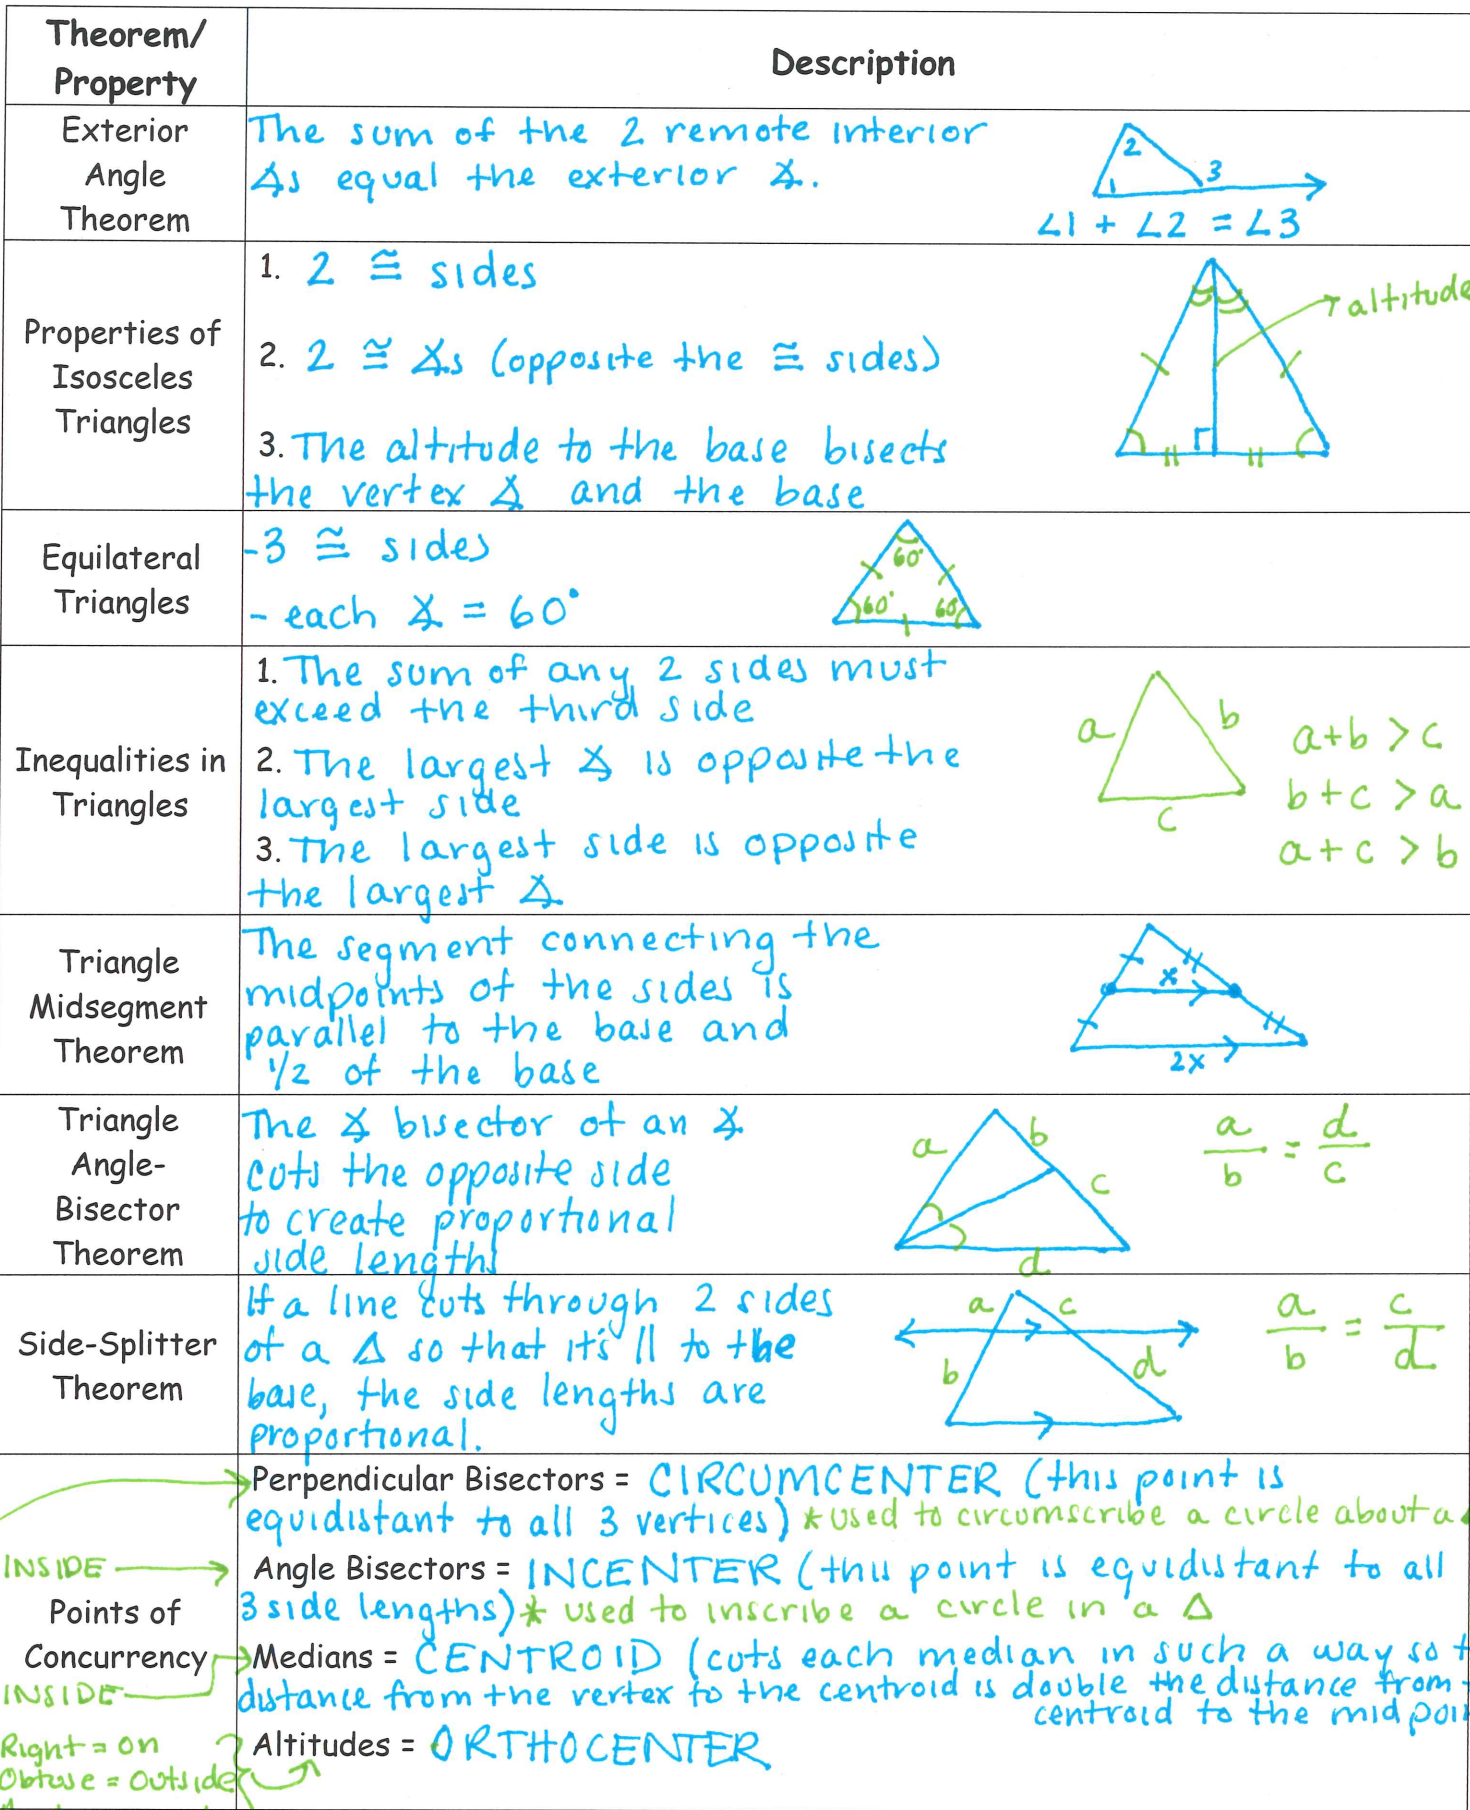 Theorem/
Property
Description
Exterior
Angle
Theorem
The sum of the 2 remote interior
∡s equal the exterior ∡.
2
1
3
∠1 + ∠2 = ∠3
Properties of
Isosceles
Triangles
1. 2 ≅ sides
2. 2 ≅ ∡s (opposite the ≅ sides)
3. The altitude to the base bisects
the vertex ∡ and the base
altitude
Equilateral
Triangles
-3 ≅ sides
- each ∡ = 60°
60°
60°
60°
Inequalities in
Triangles
1. The sum of any 2 sides must
exceed the third side
2. The largest ∡ is opposite the
largest side
3. The largest side is opposite
the largest ∡
a
b
c
a+b >c
b+c >a
a+c >b
Triangle
Midsegment
Theorem
The segment connecting the
midpoints of the sides is
parallel to the base and
1/2 of the base
x
2x
Triangle
Angle-
Bisector
Theorem
The ∡ bisector of an ∡
cuts the opposite side
to create proportional
side lengths
a
b
c
d
a/b = d/c
Side-Splitter
Theorem
If a line cuts through 2 sides
of a Δ so that it's || to the
base, the side lengths are
proportional.
a
c
b
d
a/b = c/d
Points of
Concurrency
Perpendicular Bisectors = CIRCUMCENTER (this point is
equidistant to all 3 vertices) *used to circumscribe a circle about a
INSIDE
Angle Bisectors = INCENTER (this point is equidistant to all
3 side lengths)* used to inscribe a circle in a Δ
INSIDE
Medians = CENTROID (cuts each median in such a way so
distance from the vertex to the centroid is double the distance from
centroid to the midpoi
Right = on
Obtuse = outside
Altitudes = ORTHOCENTER